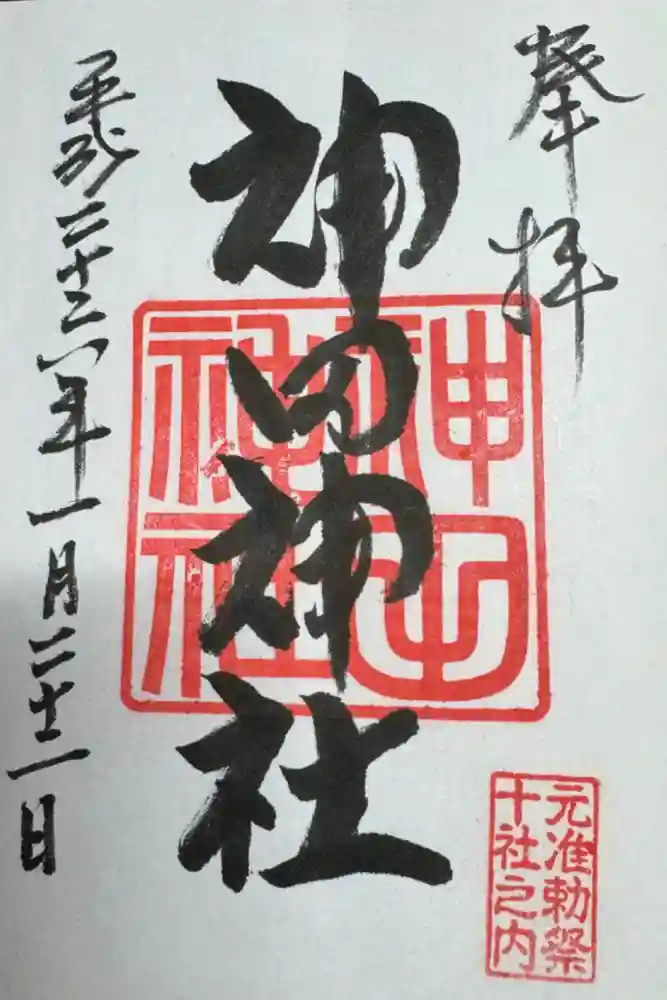 奉拝
神田神社
平成二十六年一月二十二日
神田
神社
元准勅祭
十社之内